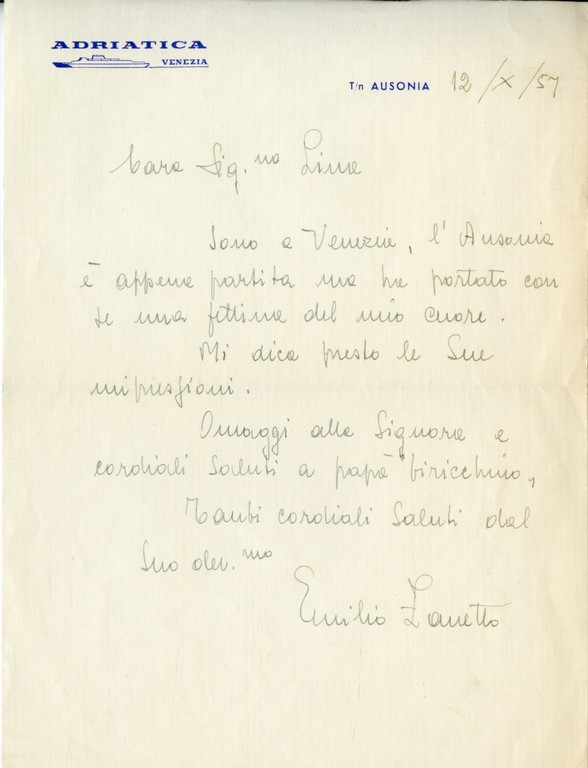 ADRIATICA
VENEZIA
T/n AUSONIA 12/X/57
Cara Sig.na Lina
Sono a Venezia, l'Ausonia
è appena partita ma ha portato con
se una fettina del mio cuore.
Mi dica presto le Sue
impressioni.
Omaggi alla Signora e
cordiali saluti a papà "biricchino"
Tanti cordiali saluti dal
Suo dev.mo
Emilio Zanetto